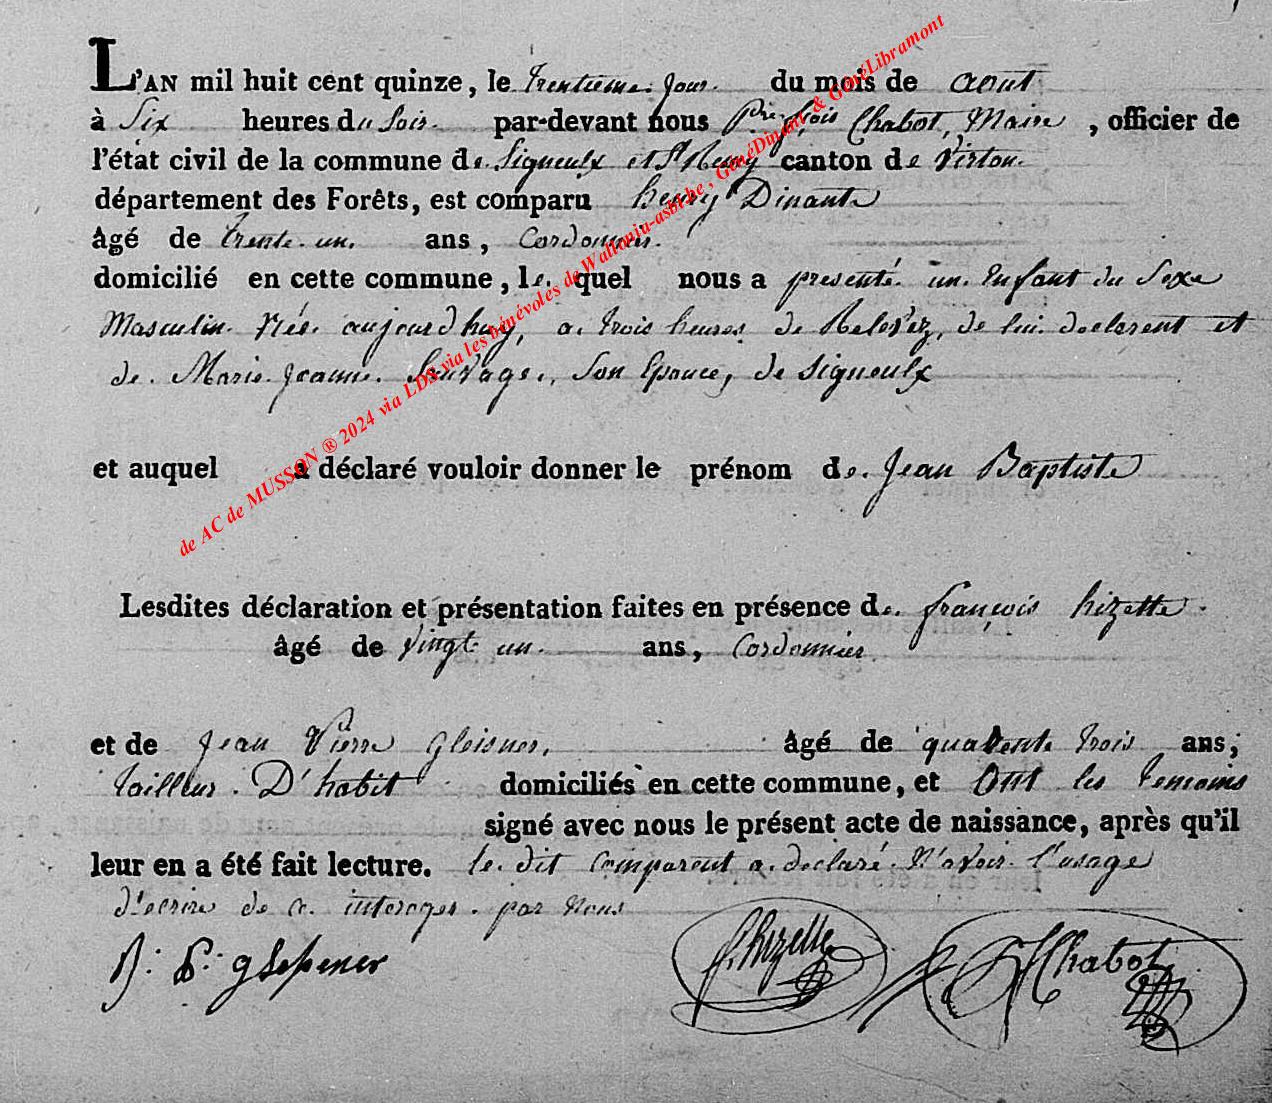 L'AN mil huit cent quinze, le trentieme jour du mois de aout
à Six heures du Soir par-devant nous Pre fçois Chabot, Maire, officier de
l'état civil de la commune de Signeulx et St Remy canton de Virton
département des Forêts, est comparu henry Dinante
âgé de trente un ans, Cordonnier.
domicilié en cette commune, lequel nous a presenté un Enfant du Sexe
Masculin Née aujourdhuy, a trois heures de Relevez, de lui declarent et
de Marie Jeanne Sauvage, Son Epouce, de Signeulx
et auquel a déclaré vouloir donner le prénom de Jean Baptiste
Lesdites déclaration et présentation faites en présence de françois hizette
âgé de vingt un ans, Cordonnier
et de Jean Pierre gleisner, âgé de quarente trois ans,
tailleur D'habit domiciliés en cette commune, et Ont les temoins
signé avec nous le présent acte de naissance, après qu'il
leur en a été fait lecture. le dit Comparent a declaré N'avoir l'usage
d'ecrire de ce interoger par Nous
f. hizette Chabot
de AC de MUSSON ® 2024 via LDS via les bénévoles de Wallonia-asbl.be, GénéDinant & GénéLibramont